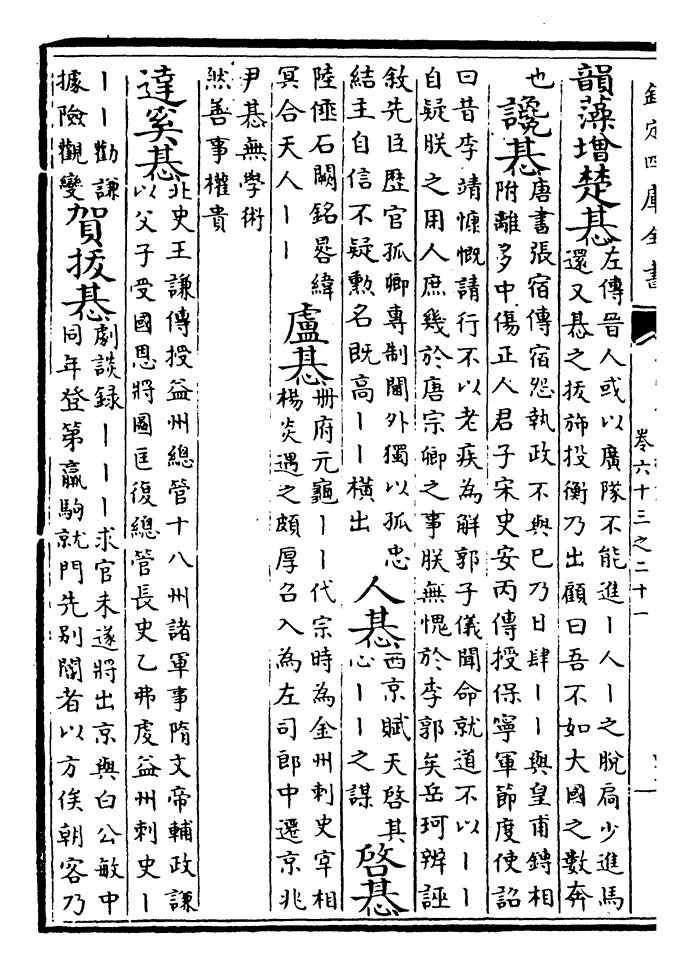 欽定四庫全書
卷六十三之二十一
韻藻增楚惎左傳晉人或以廣隊不能進丨人丨之脫扃少進馬
還又惎之拔旆投衡乃出顧曰吾不如大國之數奔
也
讒惎唐書張宿傳宿怨執政不與已乃日肆丨丨與皇甫鏄相
附離多中傷正人君子宋史安丙傳授保寧軍節度使詔
曰昔李靖慷慨請行不以老疾為解郭子儀聞命就道不以丨丨
自疑朕之用人庶幾於唐宗卿之事朕無愧於李郭矣岳珂辨誣
敘先臣歴官孤卿專制閫外獨以孤忠
結主自信不疑勲名既高丨丨橫出
人惎西京賦天啓其
心丨丨之謀
啓惎
陸倕石闕銘晷緯
冥合天人丨丨
盧惎冊府元龜丨丨代宗時為金州刺史宰相
楊炎遇之頗厚召入為左司郎中遷京兆
尹惎無學術
然善事權貴
達奚惎北史王謙傳授益州總管十八州諸軍事隋文帝輔政謙
以父子受國恩將圖匡復總管長史乙弗虔益州刺史丨
丨丨勸謙
據險觀變
賀拔惎劇談録丨丨丨求官未遂將出京與白公敏中
同年登第羸駒就門先别閽者以方俟朝客乃